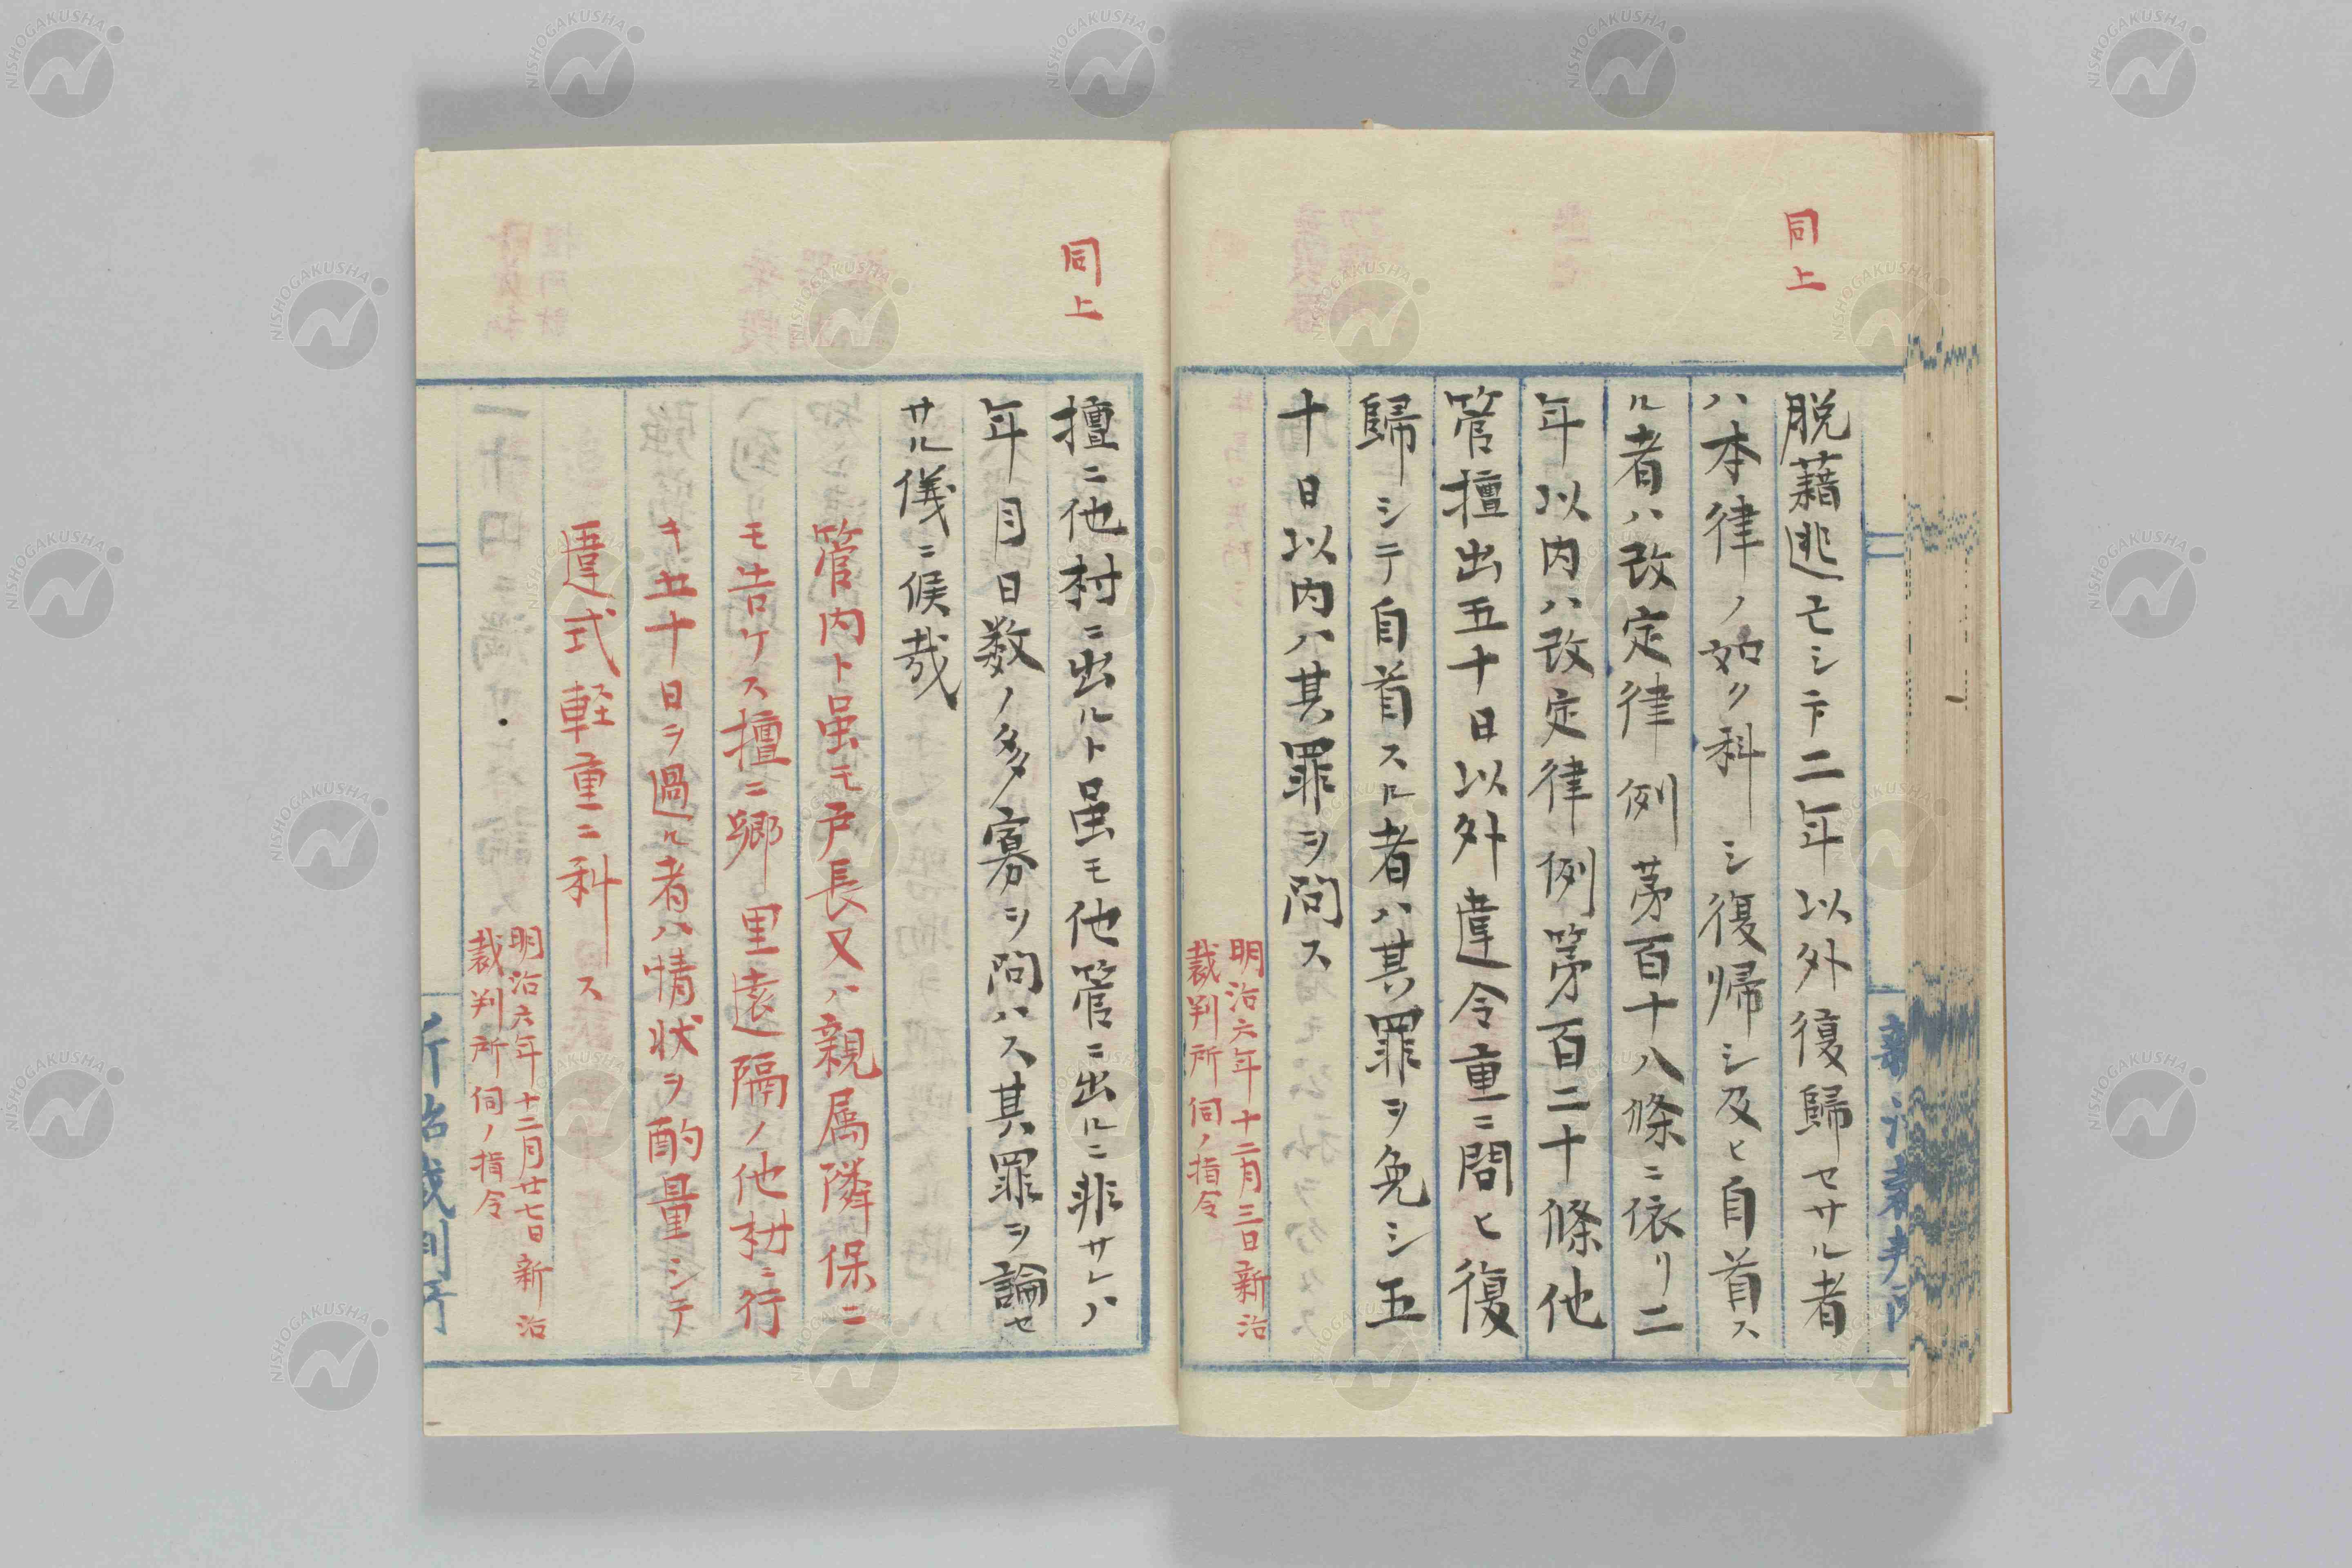 同上
脱藉逃亡シテ二年以外復歸セサル者
ハ本律ノ如ク科シ復帰シ及ヒ自首ス
ル者ハ改定律例茅百十八條ニ依リ二
年以内ハ改定律例第百二十條他
管擅出五十日以外違令重ニ問ヒ復
歸シテ自首スル者ハ其罪ヲ免シ五
十日以内ハ其罪ヲ問ス
明治六年十二月三日新治
裁判所伺ノ指令
同上
擅ニ他村ニ出ルト虽モ他管ニ出ルニ非サレハ
年月日数ノ多寡ヲ問ハス其罪ヲ論セ
サル儀ニ候哉
管内ト虽モ戸長又ハ親属隣保ニ
モ告ケス擅ニ郷里遠隔ノ他村ニ行
キ五十日ヲ過ル者ハ情状ヲ酌量シテ
違式軽重ニ科ス
明治六年十二月廿七日新治
裁判所伺ノ指令
新治裁判所
NISHOGAKUSHA